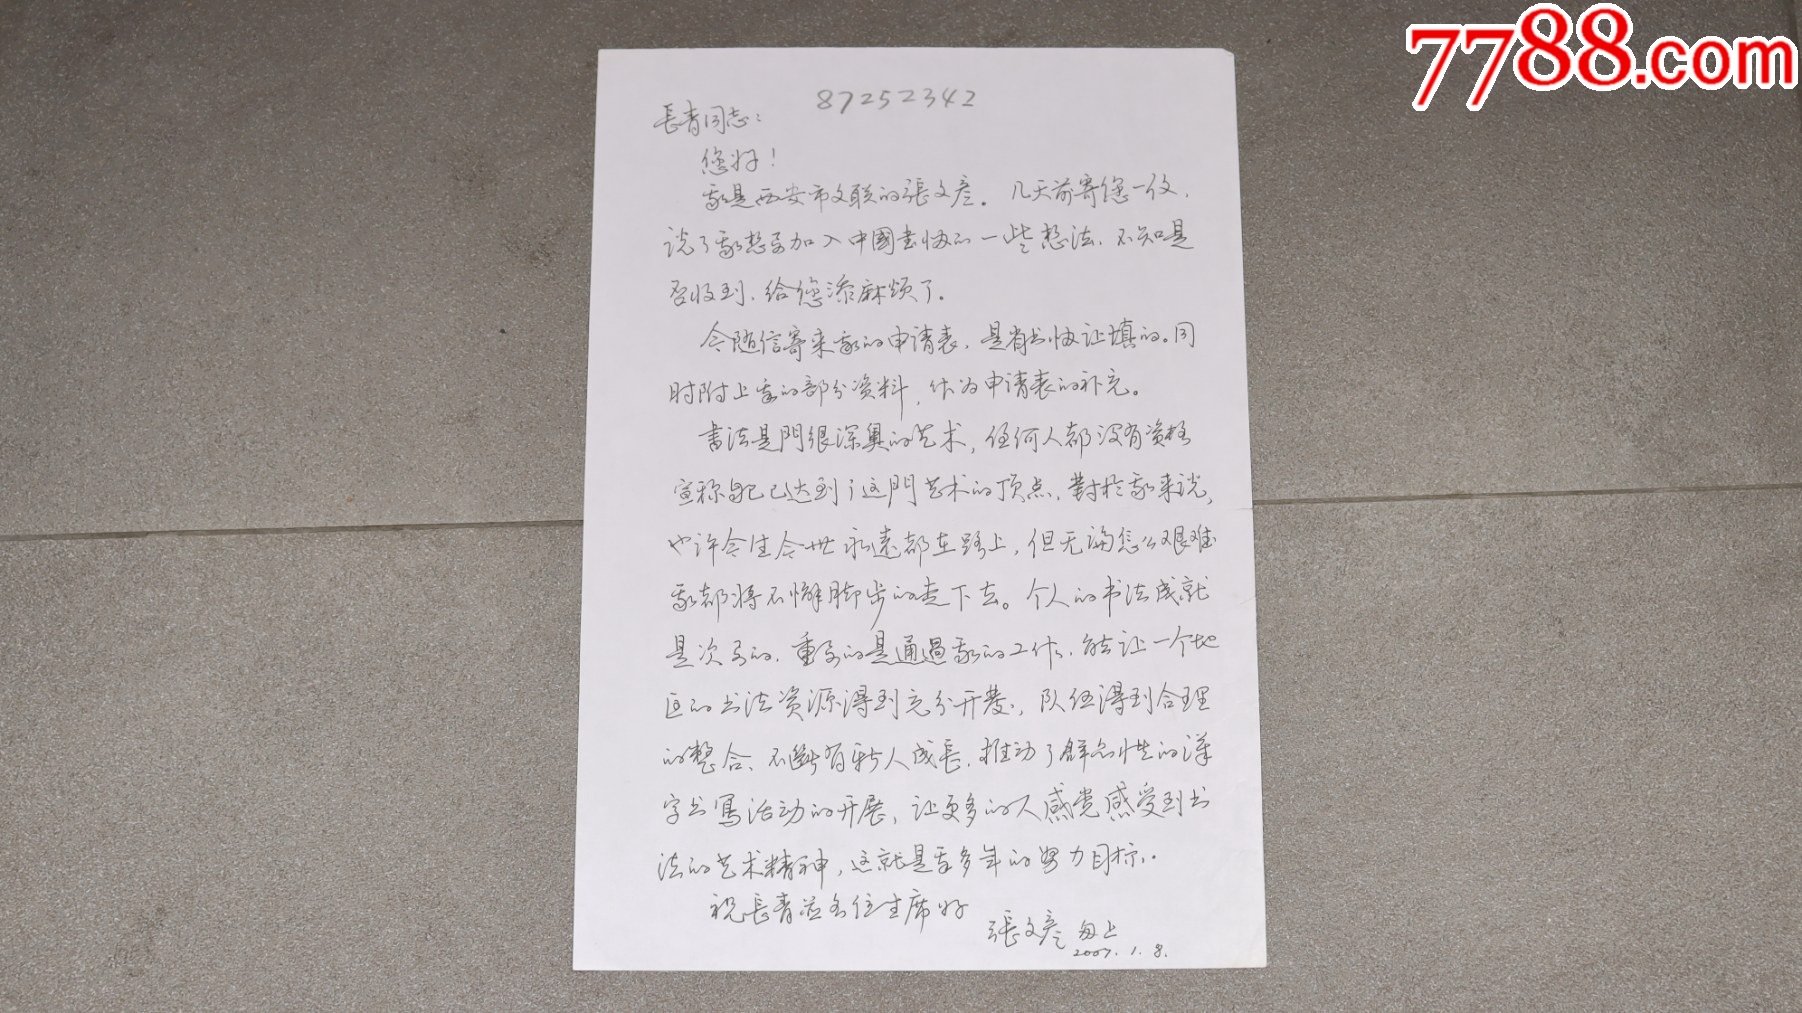 7788.com
87252342
長青同志：
您好！
我是西安市文联的張文彦。几天前寄您一仪，
说了我想要加入中國书协的一些想法，不知是
否收到，给您添麻烦了。
今随信寄来我的申请表，是省书协让填的。同
时附上我的部分资料，作为申请表的补充。
書法是門很深奥的艺术，任何人都没有资格
宣称自己已达到了这門艺术的顶点，對於我来说，
也许今生今世永遠都在路上，但无論怎么艰难
我都将不懈脚步的走下去。个人的书法成就
是次要的，重要的是通過我的工作，能让一个地
区的书法资源得到充分开發，队伍得到合理
的整合，不斷有新人成長，推动了群众性的漢
字书寫活动的开展，让更多的人感觉感受到书
法的艺术精神，这就是我多年的努力目标。
祝長青並各位主席好
張文彦 匆上
2007.1.8.